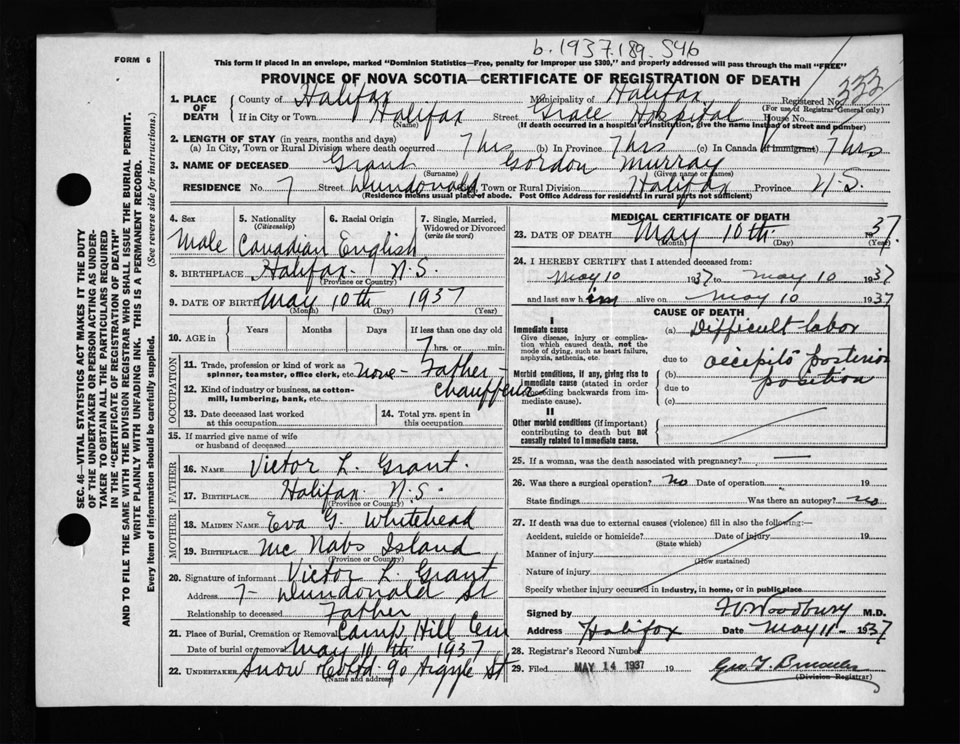 b. 1937.189.546
FORM 6
This form if placed in an envelope, marked "Dominion Statistics—Free, penalty for improper use $300," and properly addressed will pass through the mail "FREE"
PROVINCE OF NOVA SCOTIA—CERTIFICATE OF REGISTRATION OF DEATH
333
1. PLACE OF DEATH
County of Halifax Municipality of Halifax Registered No.
(For use of Registrar General only)
If in City or Town Halifax Street Grace Hospital House No.
(Name) (If death occurred in a hospital or institution, give the name instead of street and number)
2. LENGTH OF STAY (in years, months and days)
(a) In City, Town or Rural Division where death occurred 7 hrs (b) In Province 7 hrs (c) In Canada (if immigrant) 7 hrs
3. NAME OF DECEASED Grant Gordon Murray
(Surname) (Given name or names)
RESIDENCE No. 7 Street Dundonald City, Town or Rural Division Halifax Province N.S.
(Residence means usual place of abode. Post Office Address for residents in rural parts not sufficient)
4. Sex Male
5. Nationality (Citizenship) Canadian
6. Racial Origin English
7. Single, Married, Widowed or Divorced (write the word)
8. BIRTHPLACE Halifax N.S.
(Province or Country)
9. DATE OF BIRTH May 10th 1937
(Month) (Day) (Year)
10. AGE in Years Months Days If less than one day old
7 hrs. or min.
OCCUPATION
11. Trade, profession or kind of work as spinner, teamster, office clerk, etc. none - Father - chauffeur
12. Kind of industry or business, as cotton-mill, lumbering, bank, etc.
13. Date deceased last worked at this occupation
14. Total yrs. spent in this occupation
15. If married give name of wife or husband of deceased
FATHER
16. NAME Victor L. Grant.
17. BIRTHPLACE Halifax N.S.
(Province or Country)
MOTHER
18. MAIDEN NAME Eva G. Whitehead
19. BIRTHPLACE Mc Nabs Island
(Province or Country)
20. Signature of informant Victor L. Grant
Address 7 - Dundonald St
Relationship to deceased Father
21. Place of Burial, Cremation or Removal Camp Hill Cem
Date of burial or removal May 10th 1937
22. UNDERTAKER Snow & Co Ltd. 90 Argyle St
(Name and address)
MEDICAL CERTIFICATE OF DEATH
23. DATE OF DEATH May 10th 1937.
(Month) (Day) (Year)
24. I HEREBY CERTIFY that I attended deceased from:
May 10 1937 to May 10 1937
and last saw him alive on May 10 1937
CAUSE OF DEATH
I
Immediate cause
Give disease, injury or complication which caused death, not the mode of dying, such as heart failure, asphyxia, asthenia, etc.
(a) Difficult labor
due to
Morbid conditions, if any, giving rise to immediate cause (stated in order proceeding backwards from immediate cause).
(b) occipito posterior position
due to
(c)
II
Other morbid conditions (if important) contributing to death but not causally related to immediate cause.
25. If a woman, was the death associated with pregnancy? —
26. Was there a surgical operation? no Date of operation 19
State findings Was there an autopsy? no
27. If death was due to external causes (violence) fill in also the following:—
Accident, suicide or homicide? Date of injury 19
(State which)
Manner of injury
(How sustained)
Nature of injury
Specify whether injury occurred in industry, in home, or in public place
Signed by Woodbury M.D.
Address Halifax Date May 11 - 1937
28. Registrar's Record Number
29. Filed MAY 14 1937 19
(Division Registrar)
SEC. 46—VITAL STATISTICS ACT MAKES IT THE DUTY
OF THE UNDERTAKER OR PERSON ACTING AS UNDER-
TAKER TO OBTAIN ALL THE PARTICULARS REQUIRED
IN THE "CERTIFICATE OF REGISTRATION OF DEATH"
AND TO FILE THE SAME WITH THE DIVISION REGISTRAR WHO SHALL ISSUE THE BURIAL PERMIT.
WRITE PLAINLY WITH UNFADING INK. THIS IS A PERMANENT RECORD.
Every item of information should be carefully supplied. (See reverse side for instructions.)